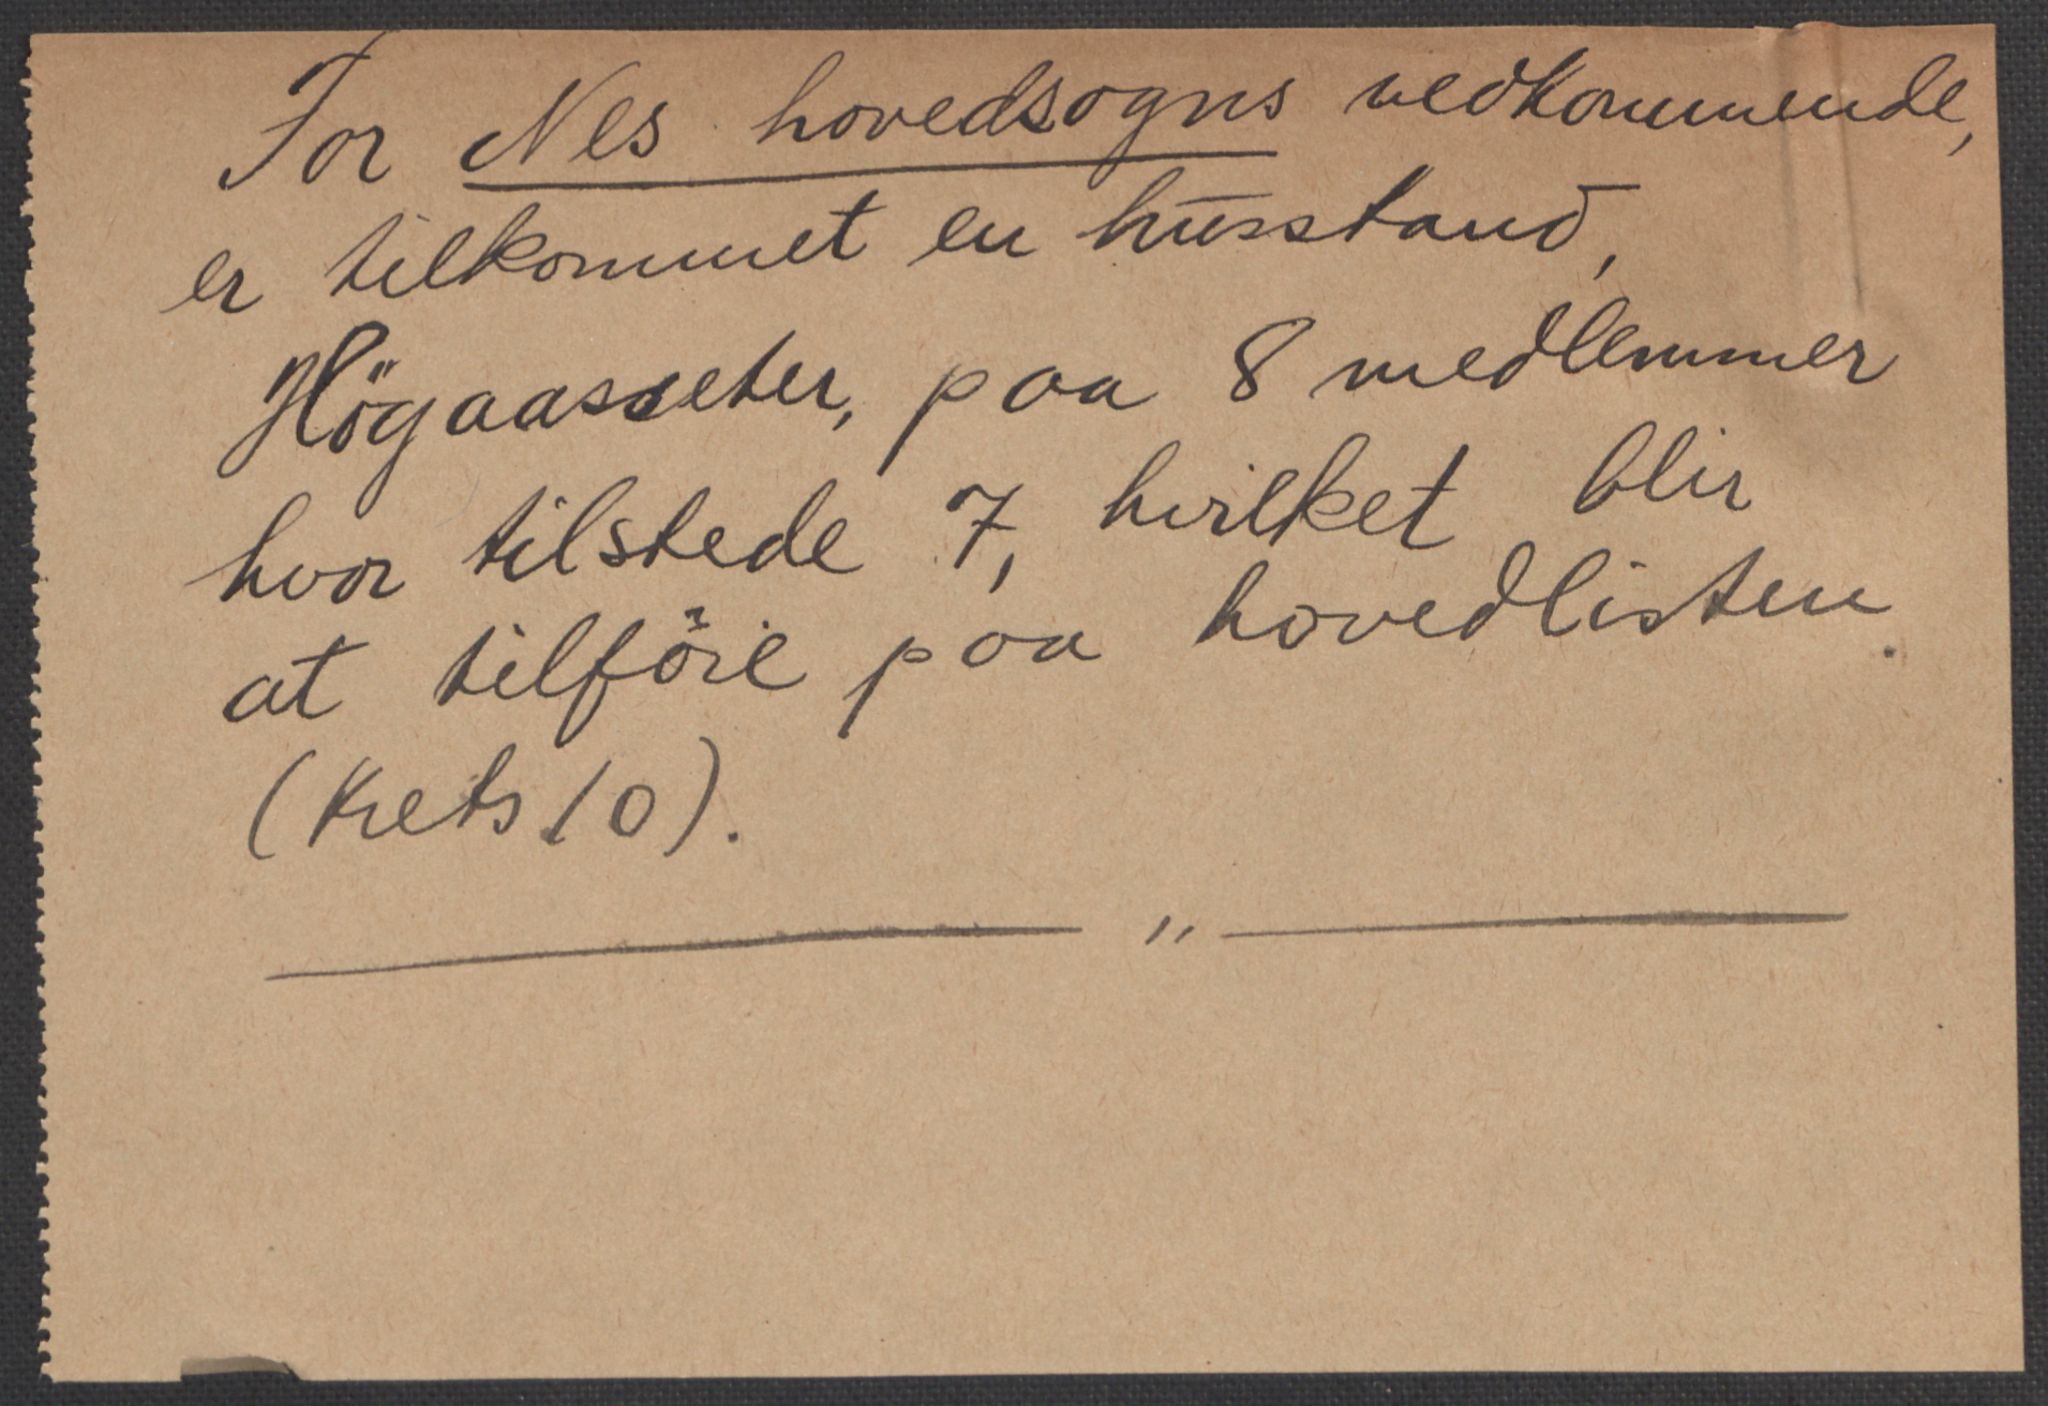 For Nes hovedsogns vedkommende,
er tilkommet en husstand,
Högaasseter, paa 8 medlemmer
hvor tilstede 7, hvilket blir
at tilföie paa hovedlisten.
(Krets 10).
"